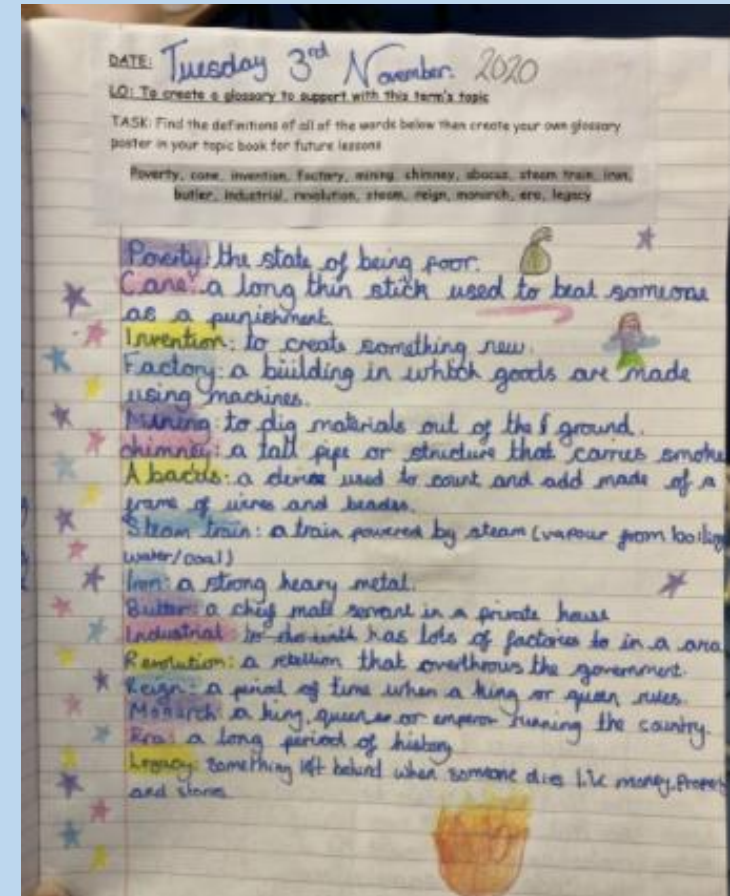 DATE: Tuesday 3rd November. 2020
LO: To create a glossary to support with this term's topic
TASK: Find the definitions of all of the words below then create your own glossary
poster in your topic book for future lessons
Poverty, cane, invention, factory, mining, chimney, abacus, steam train, iron,
butler, industrial, revolution, steam, reign, monarch, era, legacy
Poverty: the state of being poor.
Cane: a long thin stick used to beat someone
as a punishment.
Invention: to create something new.
Factory: a building in which goods are made
using machines.
Mining: to dig materials out of the ground.
chimney: a tall pipe or structure that carries smoke
Abacus: a device used to count and add made of a
frame of wires and beades.
Steam train: a train powered by steam (vapour from boiling
water/coal)
Iron: a strong heavy metal.
Butler: a chief male servant in a private house
Industrial: has lots of factories to in a area
Revolution: a rebellion that overthrows the government.
Reign: a period of time when a king or queen rules.
Monarch: a king, queen or emperor running the country.
Era: a long period of history
Legacy: Something left behind when someone dies like money,
and stories